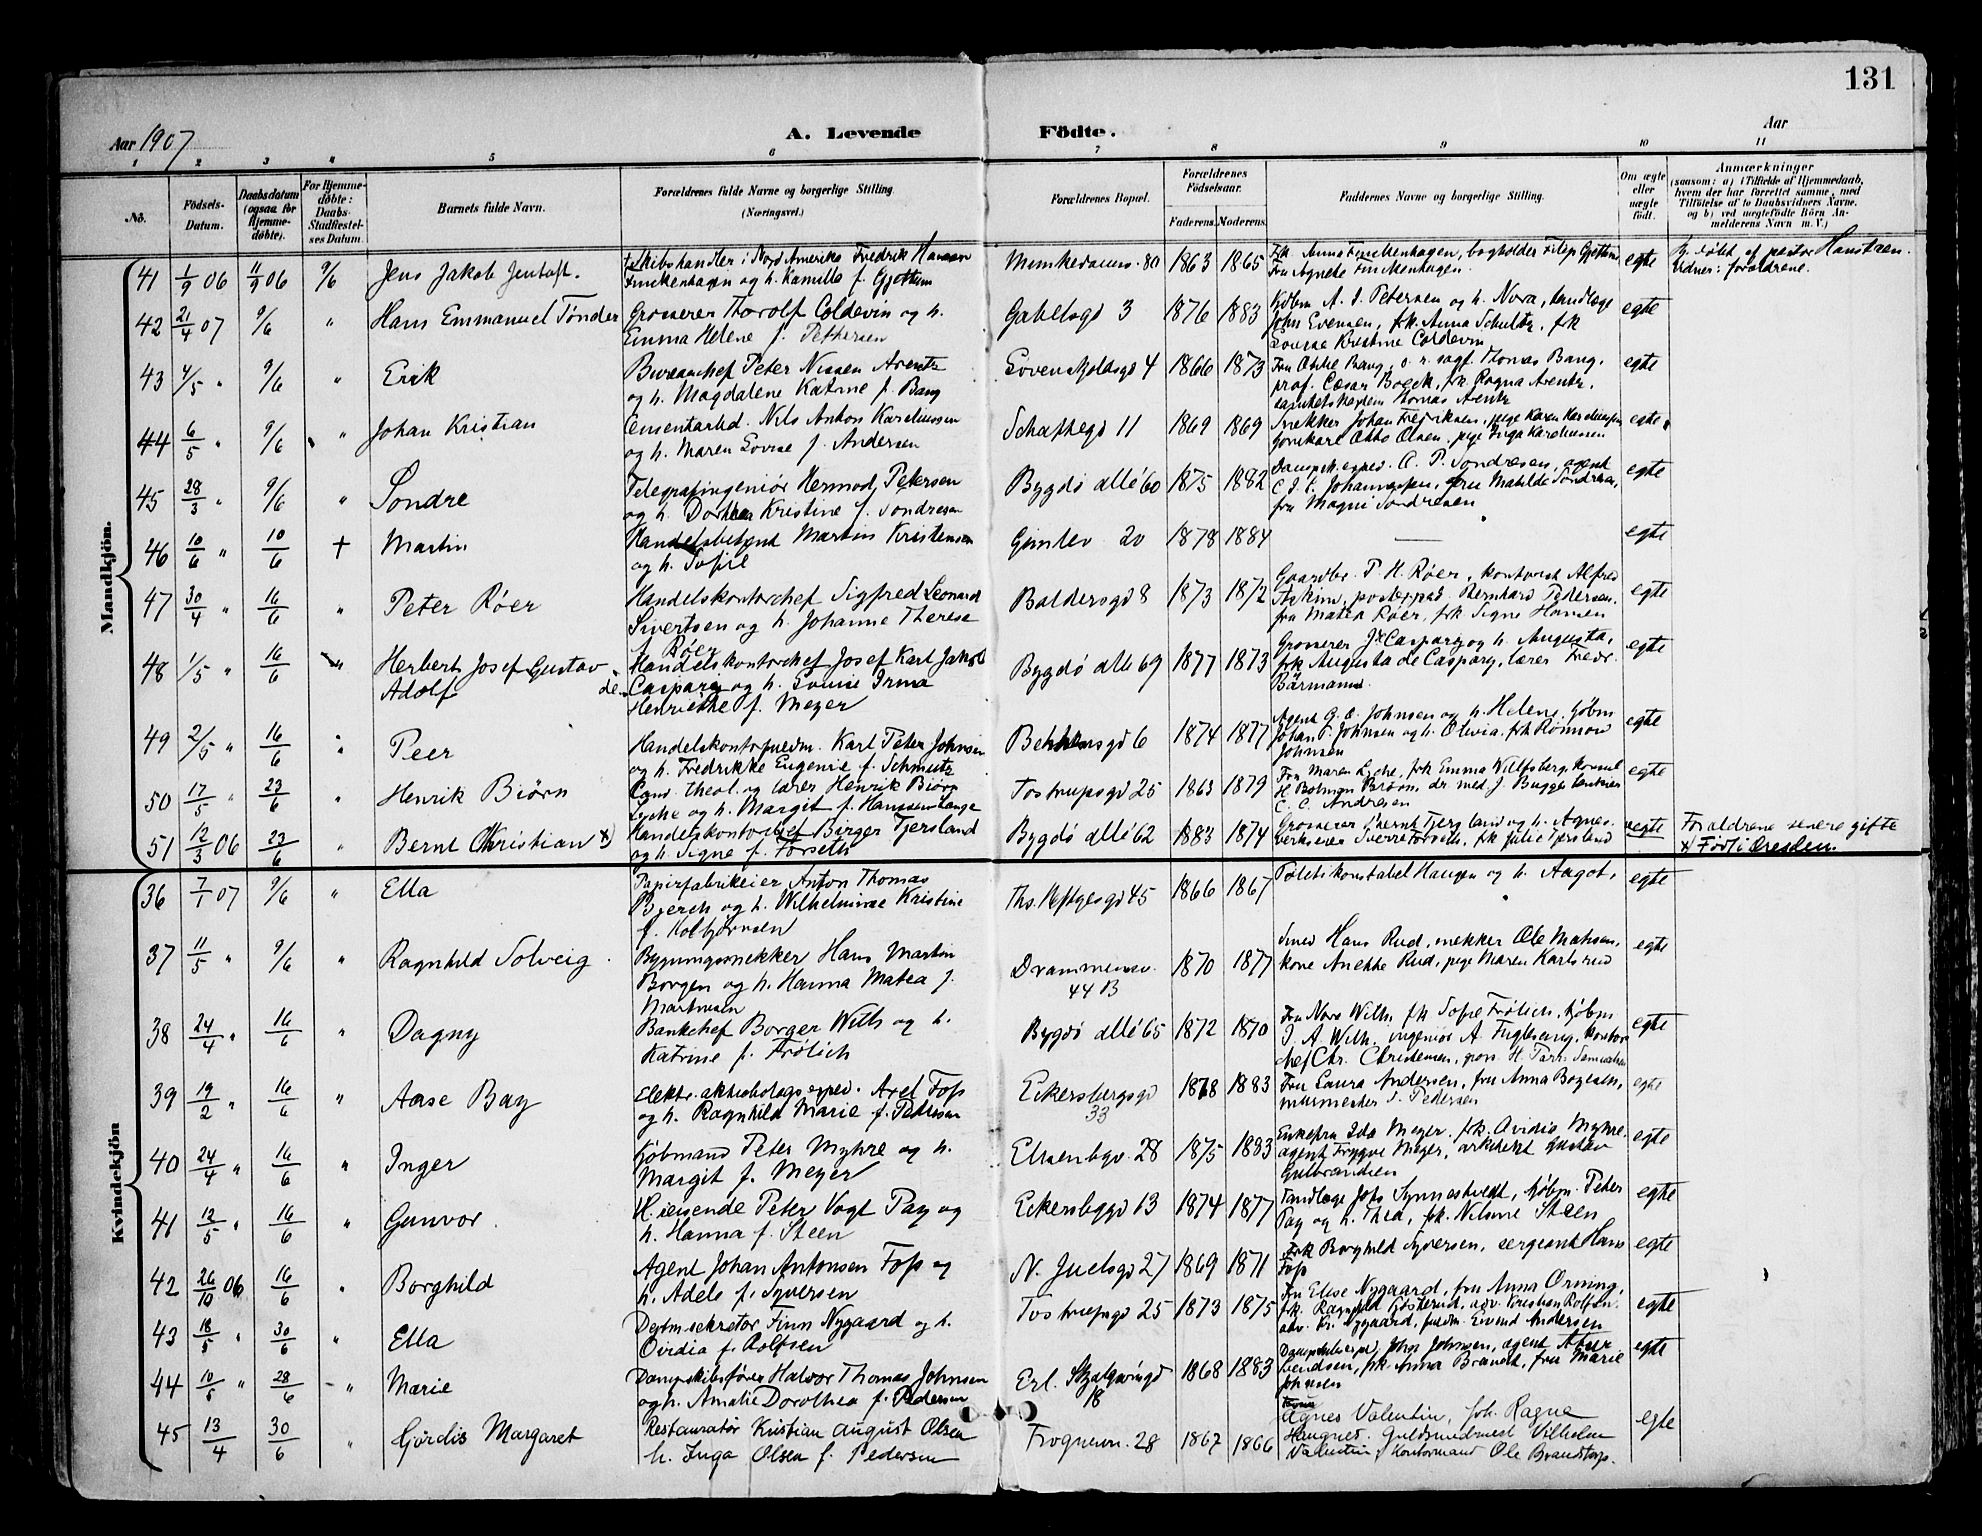 131
Aar 1907
A. Levende Födte.
Aar
1 2 3 4 5 6 7 8 9 10 11
No.
Födsels-Datum.
Daabsdatum (ogsaa for Hjemme-döbte).
For Hjemme-döbte: Daabs-Stadfæstel-ses Datum.
Barnets fulde Navn.
Forældrenes fulde Navne og borgerlige Stilling (Næringsvei.)
Forældrenes Bopæl.
Forældrenes Födselsaar.
Faderens. Moderens.
Faddernes Navne og borgerlige Stilling.
Om ægte eller uægte födt.
Anmærkninger
(saasom: a) i Tilfælde af Hjemmedaab,
hvem der har forrettet samme, med
Tilföielse af to Daabsvidners Navne.
og b) ved uægtefödte Börn An-
melderens Navn m. V.)
Mandkjön.
41 1/9 06 11/9 06 9/6 Jens Jakob Jentoft.
Skibshandler i Nord Amerika Fredrik Hannson
Finckenhagen og h. Kamilla f. Gjettum
Munkedamsv. 80 1863 1865
Frk. Anna Finckenhagen, bogholder Filip Gjettum
Fru Agnete Finckenhagen.
egte
hj. döbt af pastor Hansteen.
Vidner: forældrene.
42 21/4 07 9/6 " Hans Emmanuel Tönder
Grosserer Thorolf Coldevin og h.
Emma Helene f. Pettersen
Gabelsgd 3 1876 1883
Kjöbm A. J. Petersen og h. Nora, tandlæge
John Evensen, frk. Anna Schultz, frk
Lovise Kristine Coldevin
egte
43 4/5 " 9/6 " Erik
Bureauchef Peter Nissen Arentz
og h. Magdalene Katrine f. Bang
Lovenskjoldsgd 4 1866 1873
Thomas Bang.
prof. Cæsar Boeck, frk. Ragna Arentz,
Thomas Arentz
egte
44 6/5 " 9/6 " Johan Kristian
Cementarbd. Nils Anton Kareliussen
og h. Maren Lovise f. Andersen
Schaftesgd 11 1869 1869
Snekker Johan Fredriksen, pige Karen Karelinssen
Otto Olsen, pige Inga Kareliussen
egte
45 28/3 " 9/6 " Sondre
Telegrafingeniör Hermod Petersen
og h. Dorthea Kristine f. Sondresen
Bygdö allé 60 1875 1882
Dampsk.exped. O. P. Sondresen, agent
C. J. E. Johannessen, fru Matilde Sondresen,
fru Magni Sondresen
egte
46 10/6 " 10/6 + Martin
Handelsbetjent Martin Kristensen
og h. Sofie
Gimlev 20 1878 1884
—
egte
47 30/4 " 16/6 " Peter Röer
Handelskontorchef Sigfred Leonard
Sivertsen og h. Johanne Therese
f. Röer
Baldersgd 8 1873 1872
Gaardbr. P. H. Röer, kontorist Alfred
Askim, postexped. Bernhard Pedersen.
fru Matea Röer, frk Signe Hansen
egte
48 1/5 " 16/6 " Herbert Josef Gustav
Adolf
Handelskontorchef Josef Karl Jakob
de Caspary og h. Louise Irma
Henriette f. Meyer
Bygdö allé 69 1877 1873
Grosserer J. Caspary og h. Augusta,
frk Augusta de Caspary, lærer Fredr.
Bärmann.
egte
49 2/5 " 16/6 " Peer
Handelskontorfuldm. Karl Peter Johnsen
og h. Fredrikke Eugenie f. Schmutz
6 1874 1877
Agent G. C. Johnsen og h. Helene, kjöbm
Johan C. Johnsen og h. Olivia, frk Rönnow
Johnsen
egte
50 17/5 " 23/6 " Henrik Biörn
Cand. theol. og lærer Henrik Biörn
Lyche og h. Margit f. Hanssen Lange
Tostrupsgd 25 1863 1879
Fru Maren Lyche, frk Emma Wulfsberg, konsul
H Botman Biörn, dr. med. J. Bugge, bankier
C. C. Andresen
egte
51 12/3 06 23/6 " Bernt Christian x)
Handelskontorchef Birger Tjersland
og h. Signe f. Forseth
Bygdö allé 62 1883 1874
Grosserer Bernt Tjersland og h. Agnes.
verkseier Sverre Forseth, frk Julie Tjersland
uegte
Forældrene senere gifte
x) Födt i Dresden.
Kvindekjön
36 7/1 07 9/6 " Ella
Papirfabrikeier Anton Thomas
Bjerch og h. Wilhelmine Kristine
f. Kolbjörnsen
Ths. Heftyesgd 45 1866 1867
Politikonstabel Haugen og h. Aagot.
egte
37 11/5 " 9/6 " Ragnhild Solveig.
Bygningssnekker Hans Martin
Borgen og h. Hanna Matea f.
Martinsen
Drammensv. 44 B 1870 1877
Smed Hans Rud, snekker Ole Madsen,
kone Anette Rud, pige Maren Karlsrud
egte
38 24/4 " 16/6 " Dagny
Bankchef Borger With og h.
Katrine f. Frölich
Bygdö allé 65 1872 1870
Fru Nora With, frk Sofie Frölich, kjöbm
J. A. With, ingeniör A. Fuglesang, kontor
chef Chr. Christensen,
egte
39 19/2 " 16/6 " Aase Bay
Elektr. aktiebolags exped. Axel Foss
og h. Ragnhild Marie f. Pedersen
Eckersbergsgd 33 1868 1883
Fru Laura Andersen, fru Anna Bogesen,
murmester T. Pedersen
egte
40 24/4 " 16/6 " Inger
Kjöbmand Peter Myhre og h.
Margit f. Meyer
Elisenbgv. 28 1875 1883
Enkefru Ida Meyer, frk. Ovidia Myhre,
agent Trygve Meyer, arkitekt Gustav
Gulbrandsen
egte
41 12/5 " 16/6 " Gunvor.
H. reisende Peter Vogt Pay og
h. Hanna f. Steen
Eckersbggd 13 1874 1877
Tandlæge Johs Synnestvedt, kjöbm. Peter
Pay og h. Thea, frk. Nilsine Steen
egte
42 26/10 06 16/6 " Borghild
Agent Johan Antonsen Foss og
h. Adele f. Syversen
N. Juelsgd 27 1869 1871
Frk Borghild Syversen, sergeant Hans
Foss
egte
43 18/5 " 30/6 " Ella
Deptm.sekretær Finn Nygaard og h.
Ovidia f. Rolfsen
Tostrupsgd 25 1873 1875
Fru Elise Nygaard, fru Anna Örning,
frk. Ragnhild Kösterud, adv. Kristian Rolfsen.
adv. Kr. Nygaard, fuldm. Eivind Andersen
egte
44 10/5 " 28/6 " Marie
Dampskibsförer Halvor Thomas Johnsen
og h. Amalie Dorothea f. Pedersen
Erl. Skjalgsönsgd 18 1868 1883
Johs Johnsen, agent
Bendsen, frk Anna Brandt, fru Marie
Johnsen
egte
45 13/4 30/6 " Gjördis Margaret
Restauratör Kristian August Olsen
h. Inga Olsen f. Pedersen
Frognerv. 28 1867 1866
Agnes Valentin, frk. Ragna
Haugnes. Guldsmedmest Vilhelm
Valentin, Kontormand Ole Brandtorp.
egte